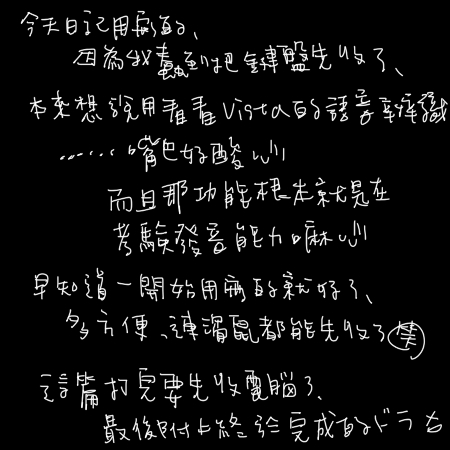 今天日記用寫的、
因為我蠢到把鍵盤先收了、
本來想說用看看Vista的語音辨識
……嘴巴好酸心
而且那功能根本就是在
考驗發音能力嘛心
早知道一開始用寫的就好了、
多方便、連滑鼠都能先收了(笑)
這篇打完要先收電腦了、
最後附上終於完成的ドラ